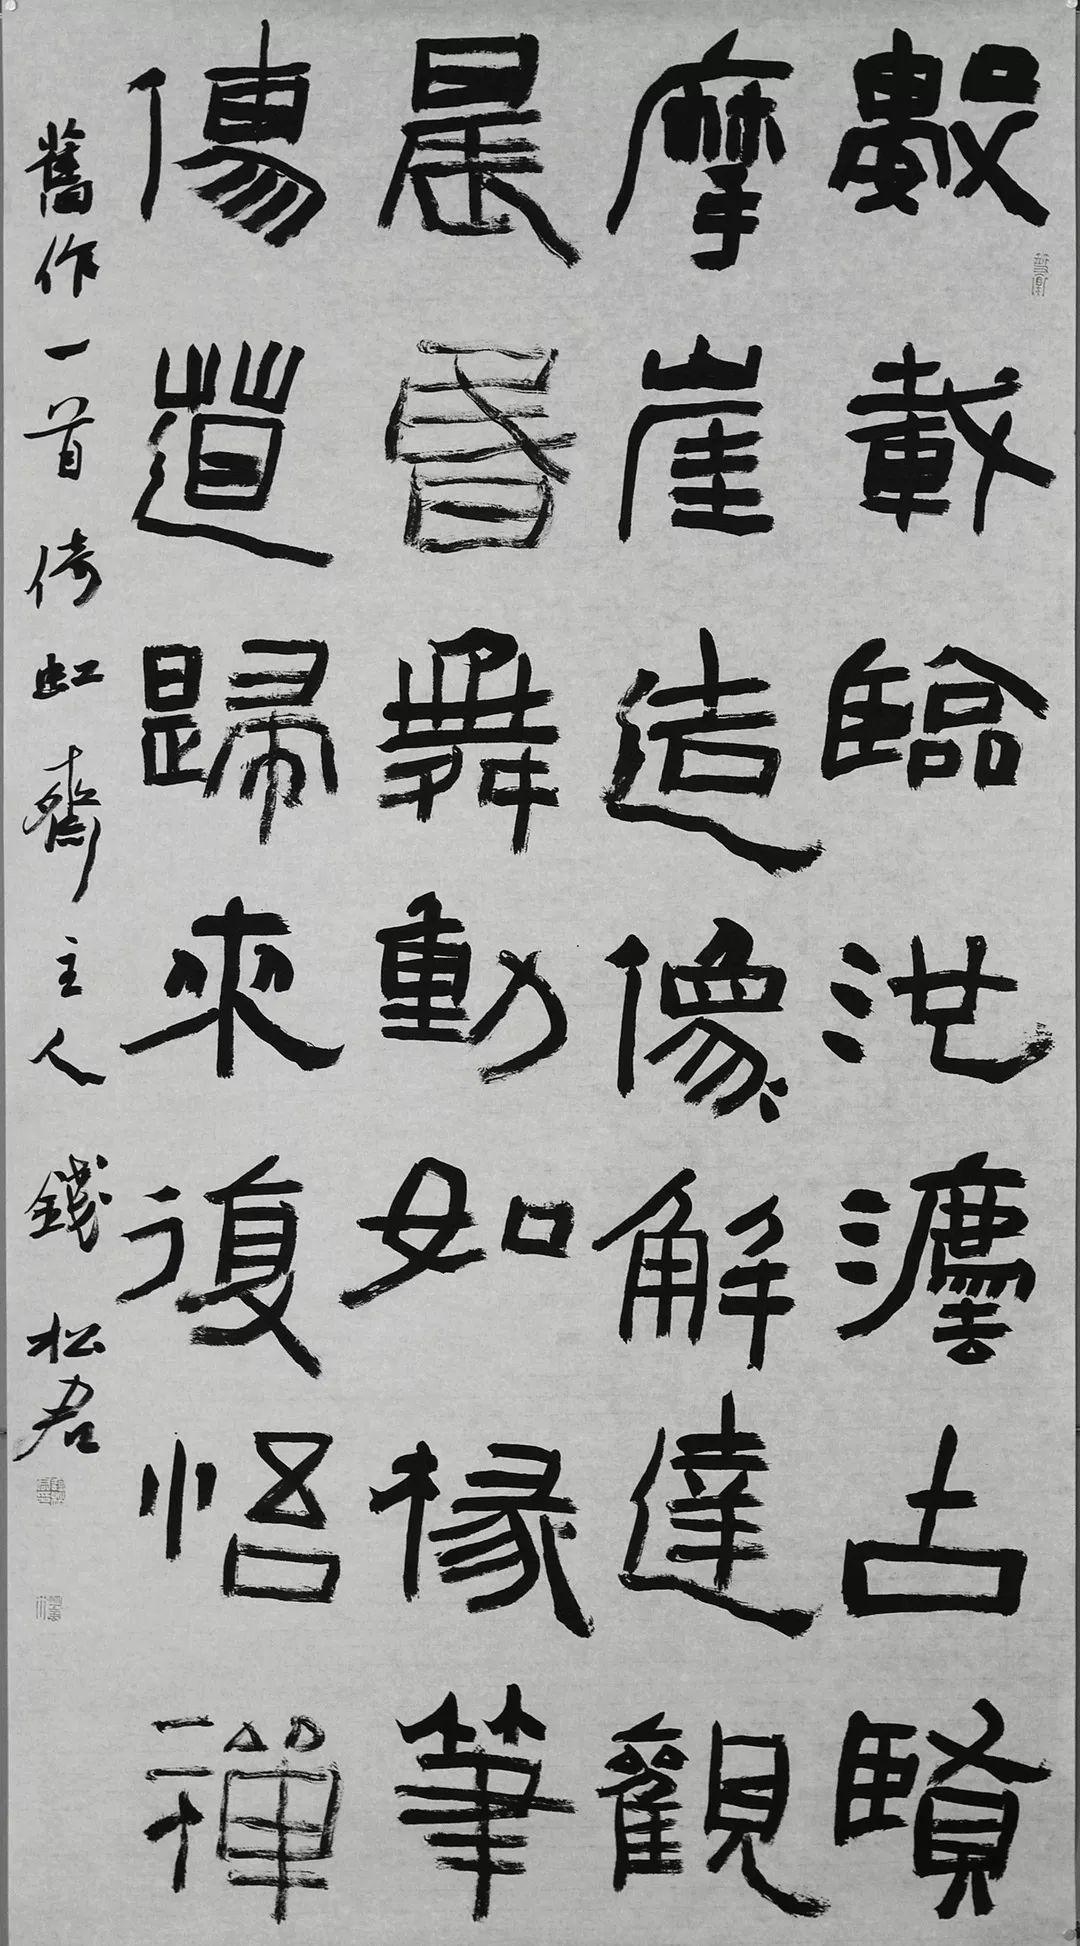 數載臨池灋古賢
摩崖造像解達觀
晨昬舞動如椽筆
傳道歸來復悟禪
舊作一首倚虹齋主人錢松君